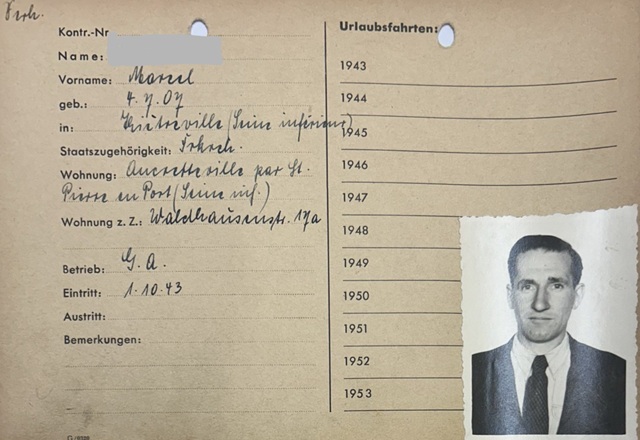 Verh.
Kontr.-Nr
Name:
Vorname: Marcel
geb.: 4.7.07
in: Thiétreville (Seine inférieur)
Staatszugehörigkeit: Frkrch.
Wohnung: Ancretteville par St.
Pierre en Port (Seine inf.)
Wohnung z. Z.: Waldhausenstr. 17a
Betrieb: G. A.
Eintritt: 1.10.43
Austritt:
Bemerkungen:
Urlaubsfahrten:
1943
1944
1945
1946
1947
1948
1949
1950
1951
1952
1953